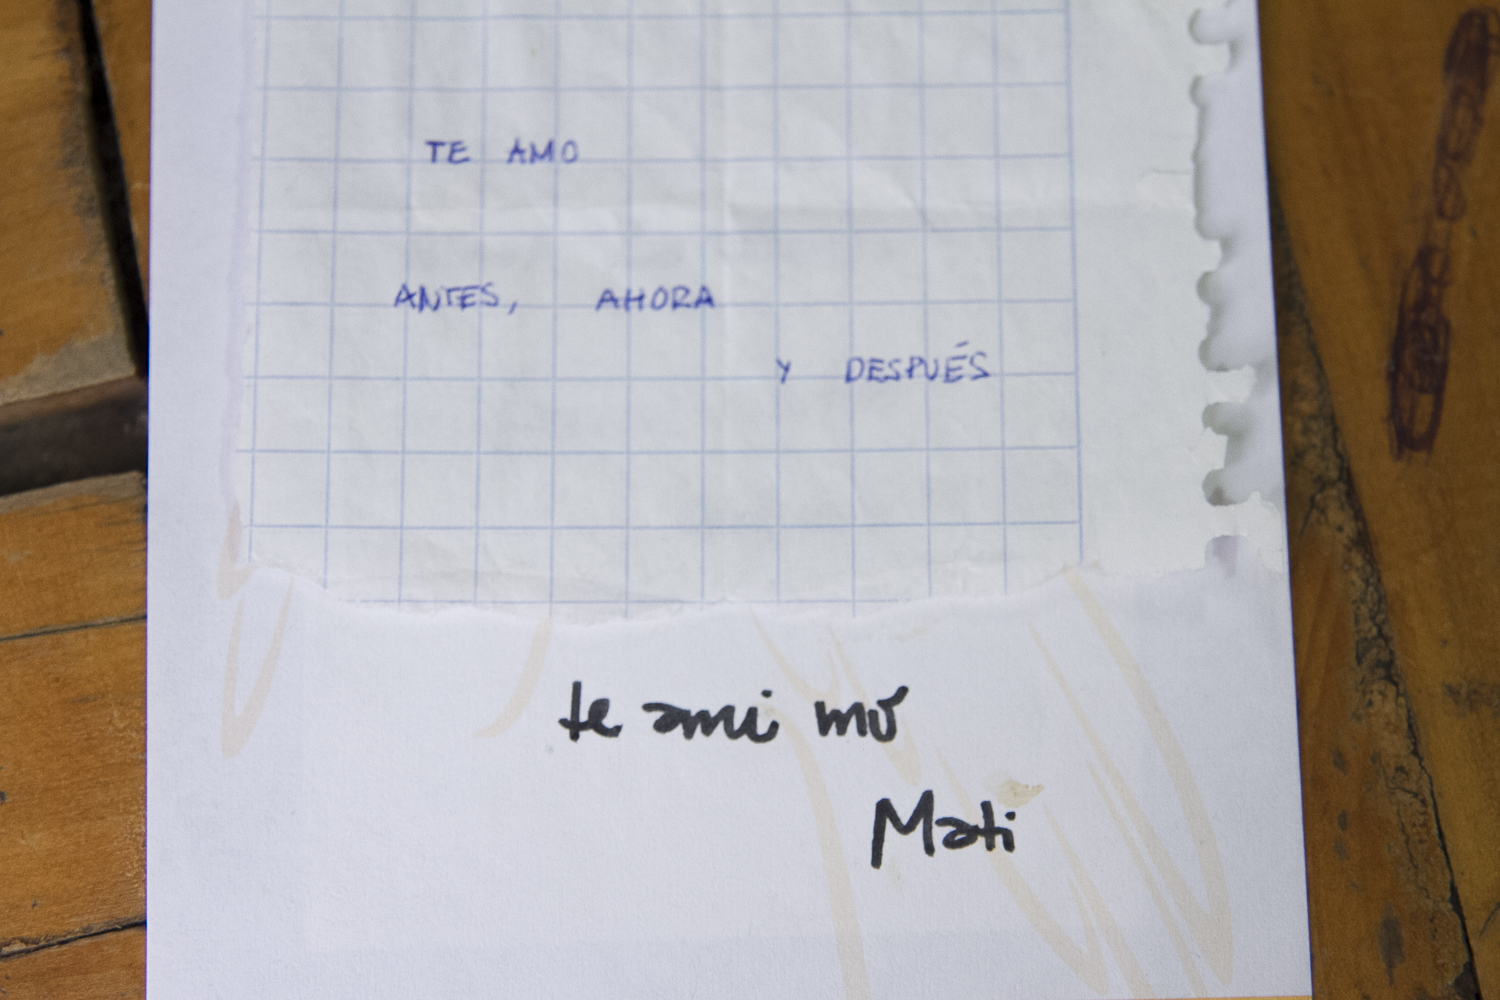 TE AMO
ANTES, AHORA
Y DESPUÉS
te ami mo
Mati